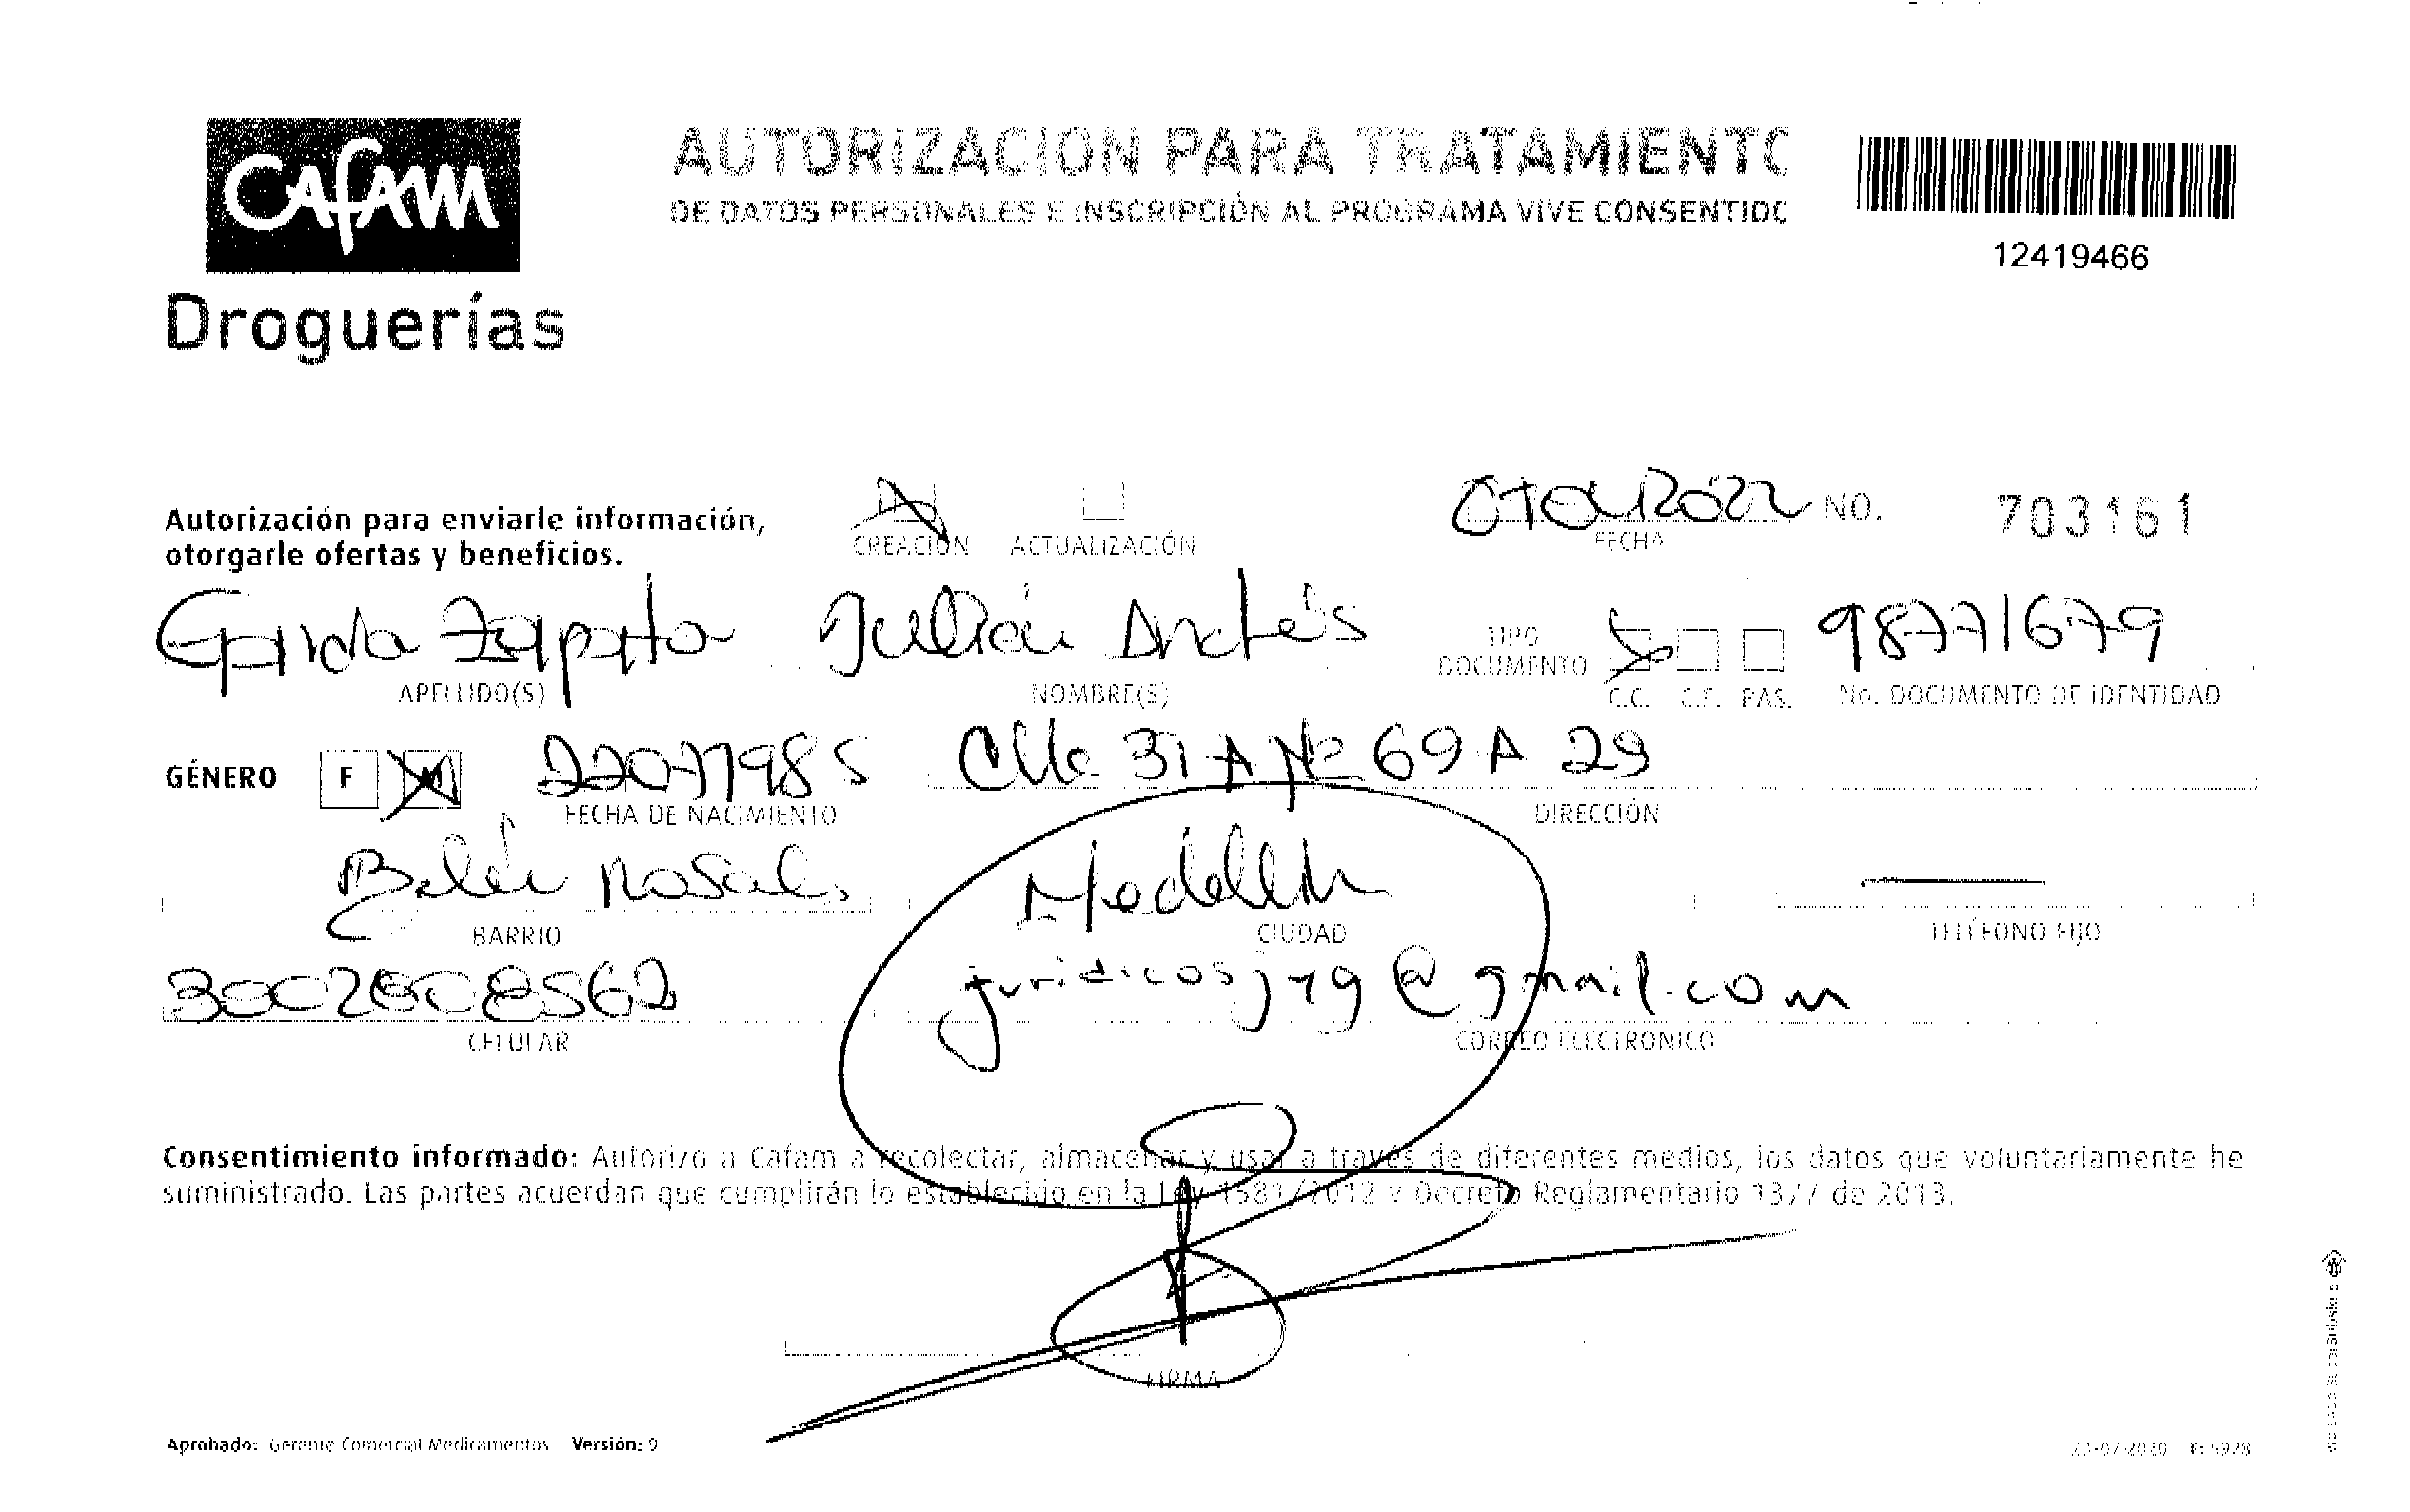 Cafam
Droguerías
AUTORIZACIÓN PARA TRATAMIENTO
DE DATOS PERSONALES E INSCRIPCIÓN AL PROGRAMA VIVE CONSENTIDO
12419466
Autorización para enviarle información,
otorgarle ofertas y beneficios.
CREACIÓN ACTUALIZACIÓN
FECHA
NO. 703161
Garcia Zapata Julián Andrés
APELLIDO(S) NOMBRE(S)
TIPO DOCUMENTO C.C. C.E. PAS.
98771679
No. DOCUMENTO DE IDENTIDAD
GÉNERO F M 22071985 Clle 31 A Nº 69 A 29
FECHA DE NACIMIENTO DIRECCIÓN
Belén Rosales Medellín
BARRIO CIUDAD TELÉFONO FIJO
juridicosj79@gmail.com
CELULAR CORREO ELECTRÓNICO
Consentimiento informado: Autorizo a Cafam a recolectar, almacenar y usar a través de diferentes medios, los datos que voluntariamente he
suministrado. Las partes acuerdan que cumplirán lo establecido en la Ley 1581/2012 y Decreto Reglamentario 1377 de 2013.
FIRMA
Aprobado: Gerente Comercial Medicamentos Versión: 9